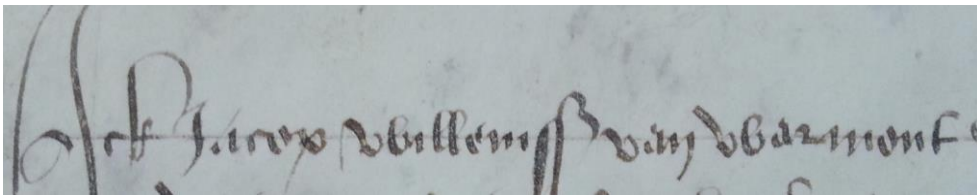 Ick Jacop willemss van warmont